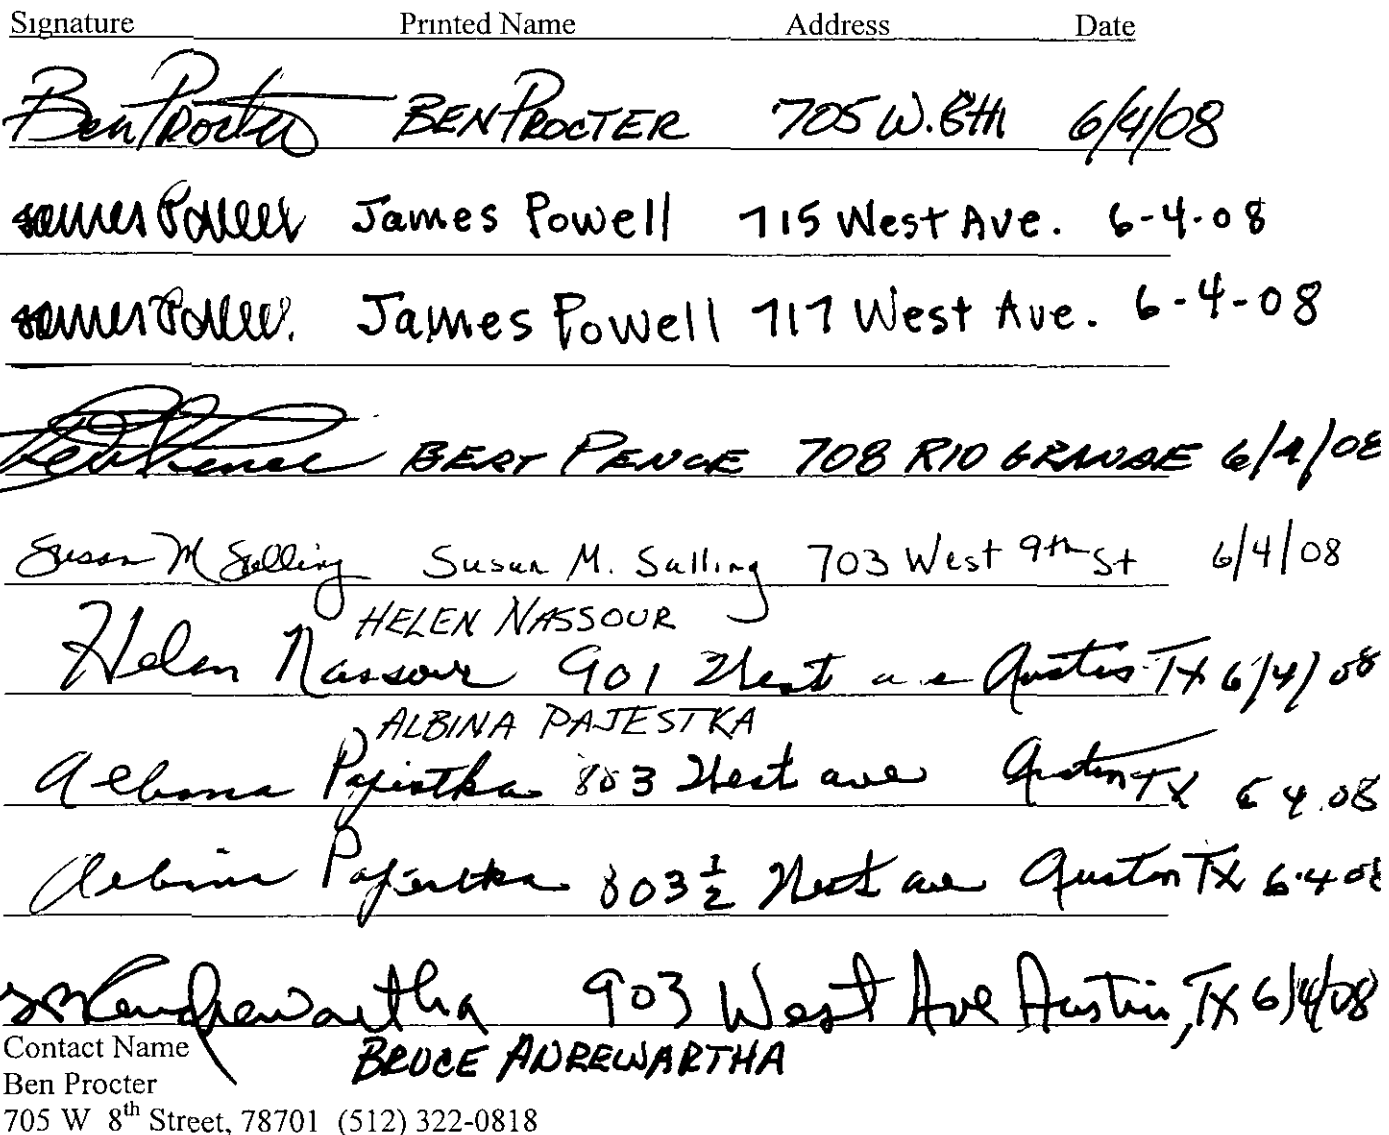 Signature Printed Name Address Date
Ben Procter BEN PROCTER 705 W. 8TH 6/4/08
James Powell James Powell 715 West Ave. 6-4-08
James Powell James Powell 717 West Ave. 6-4-08
Bert Pence BERT PENCE 708 RIO GRANDE 6/4/08
Susan M Salling Susan M. Salling 703 West 9th St 6/4/08
HELEN NASSOUR
Helen Nassour 901 West ave Austin TX 6/4/08
ALBINA PAJESTKA
Albina Pajestka 803 West ave Austin TX 6 4.08
Albina Pajestka 803 1/2 West ave Austin TX 6.4.08
903 West Ave Austin, TX 6/4/08
Contact Name
BRUCE ANREWARTHA
Ben Procter
705 W 8th Street, 78701 (512) 322-0818